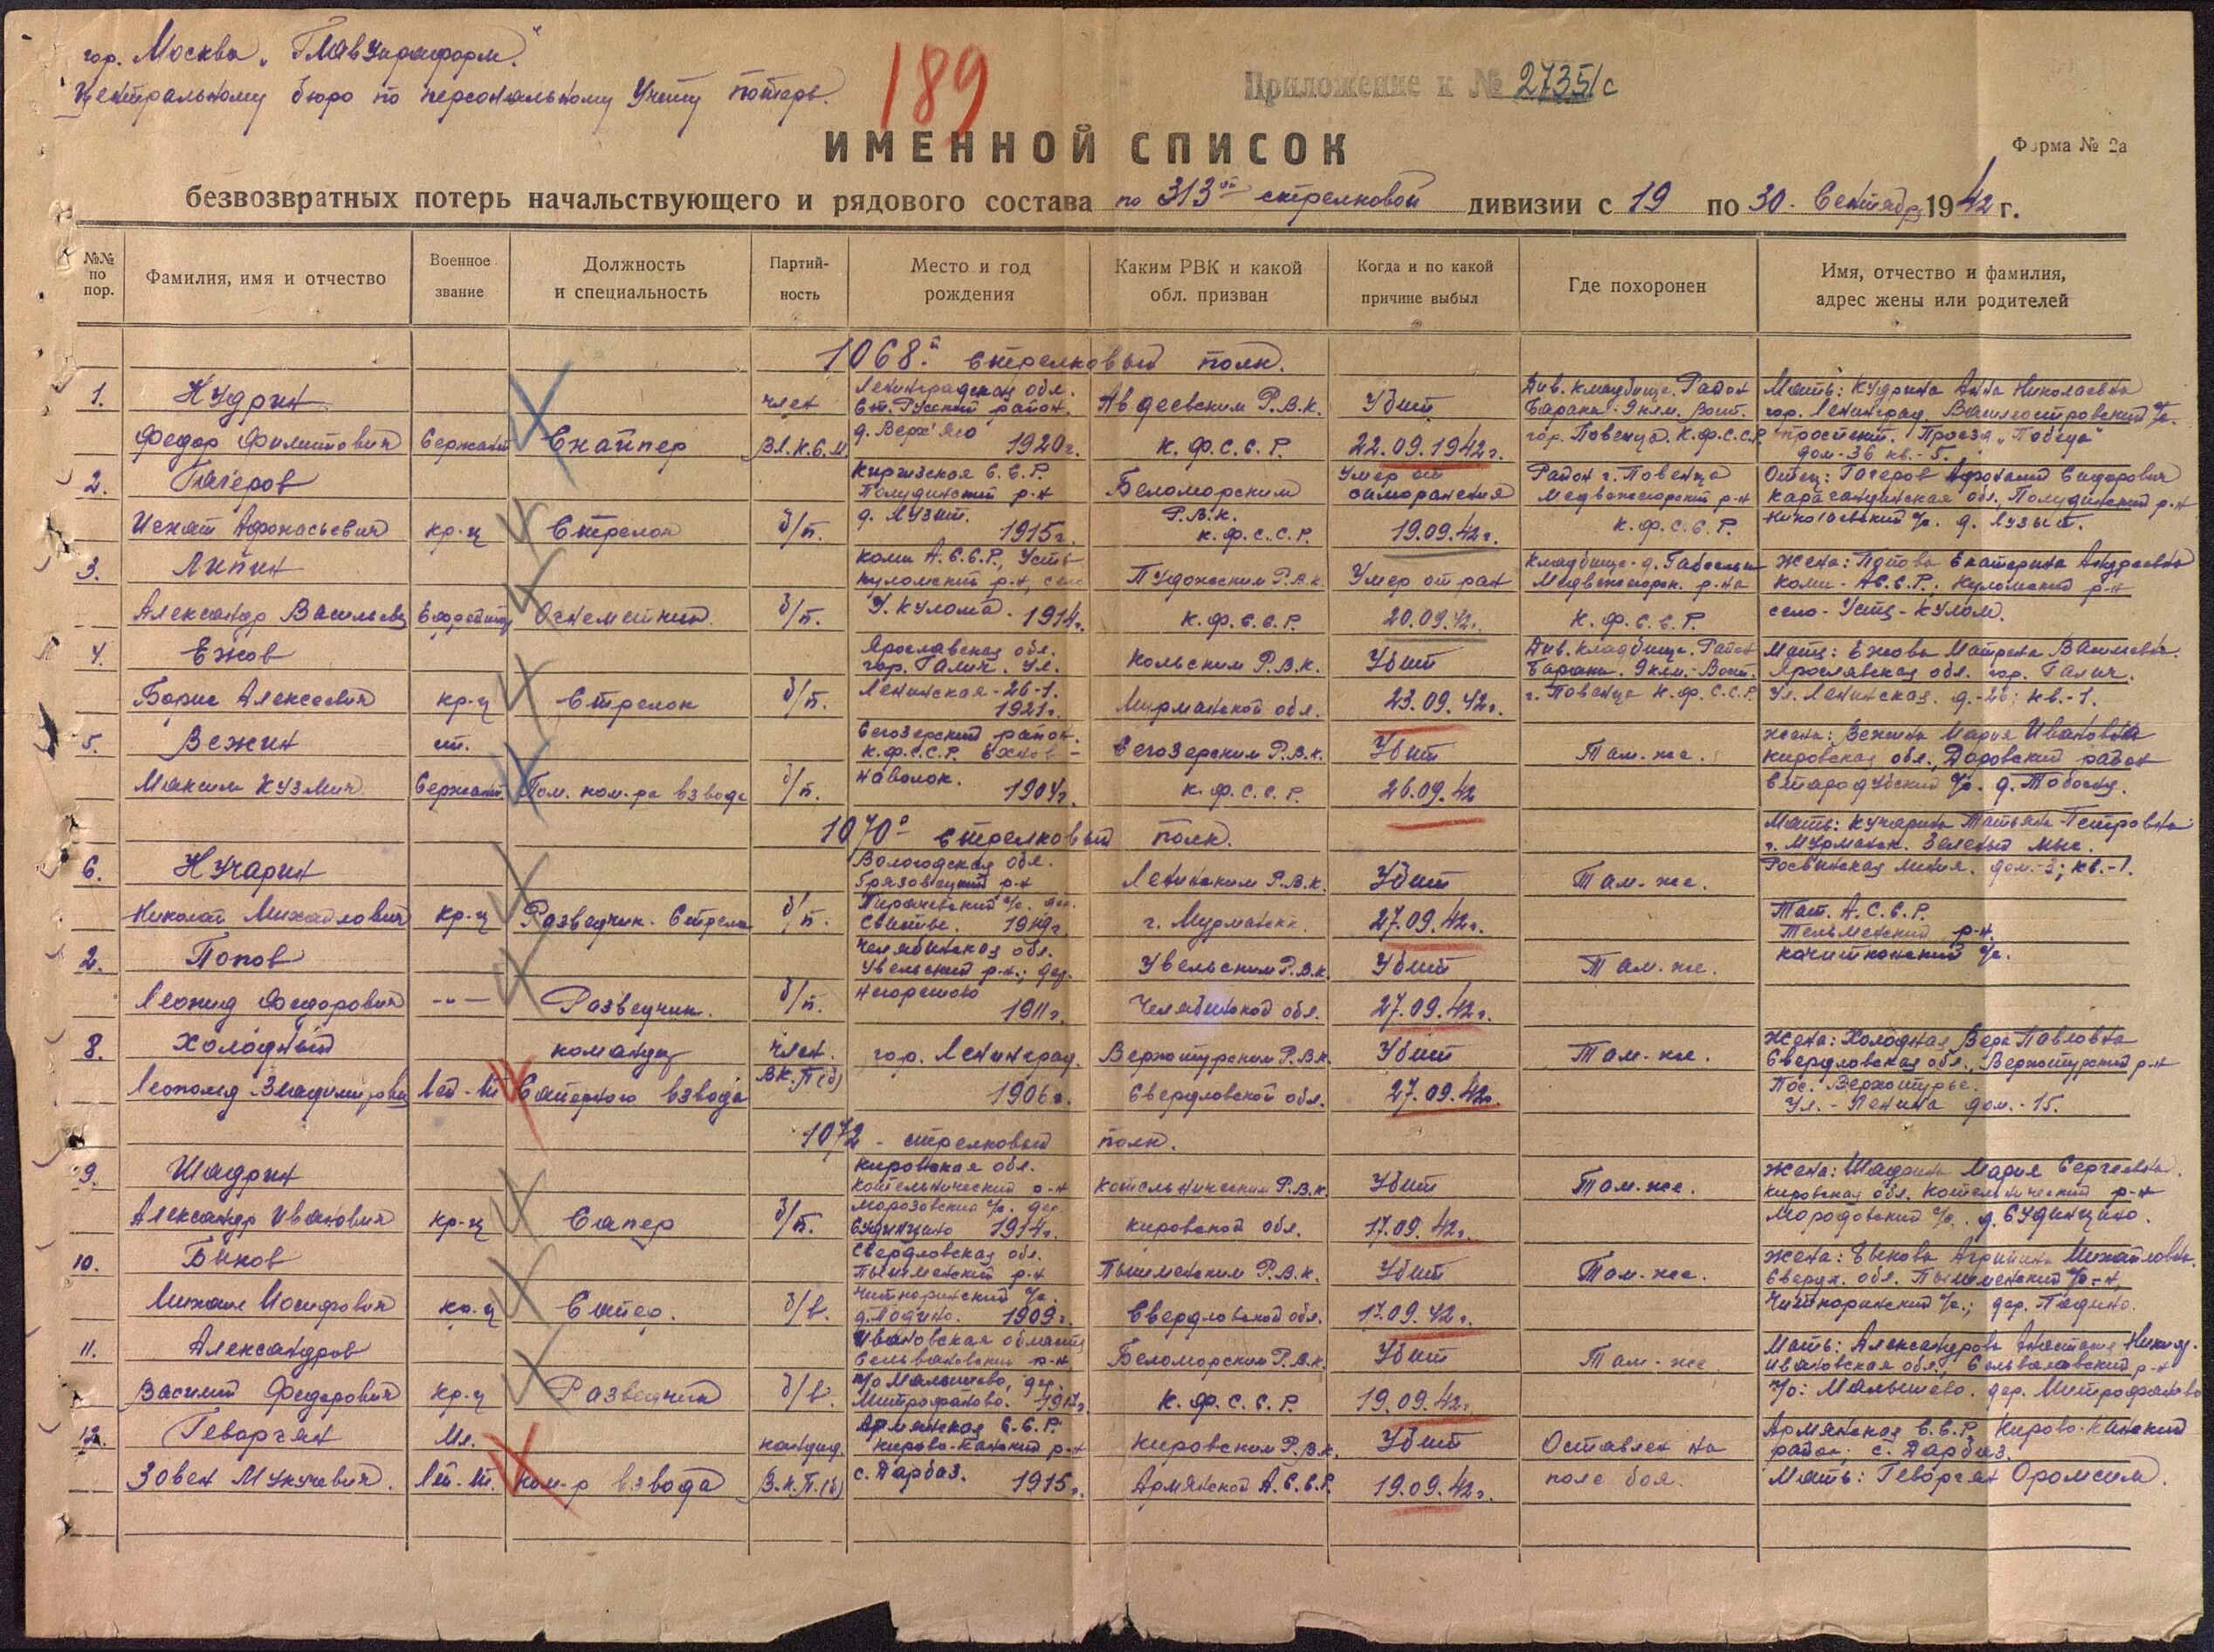 гор. Москва „Главупраформ."
Центральному бюро по персональному учету потерь.
189
Приложение к № 27351с
ИМЕННОЙ СПИСОК
Форма № 2а
безвозвратных потерь начальствующего и рядового состава по 313ой стрелковой дивизии с 19 по 30. Сентябр 1942 г.
№№ по пор.
Фамилия, имя и отчество
Военное звание
Должность и специальность
Партий- ность
Место и год рождения
Каким РВК и какой обл. призван
Когда и по какой причине выбыл
Где похоронен
Имя, отчество и фамилия, адрес жены или родителей
1068й стрелковый полк.
1. Кудрин
Федор Филиппович
Сержант
Снайпер
член
В.Л.К.С.М
Ленинградская обл.
Ст. Русский район.
1920г.
Авдеевским Р.В.К.
К.Ф.С.С.Р.
Убит
22.09.1942г.
Див. кладбище. Район
гор. Повенца. К.Ф.С.С.Р.
Мать: Кудрина Анна Николаевна
гор. Ленинград Василеостровский
проспект. Проезд „Победа"
дом-36 кв.-5.
2. Гагеров
Афонасьевич
кр-ц
Стрелок
б/п.
Киргизская С.С.Р.
Полудинский р-н
1915г.
Беломорским
Р.В.К.
К.Ф.С.С.Р.
Умер от
саморанения
19.09.42г.
Район г. Повенца
Медвежегорский р-н
К.Ф.С.С.Р.
Отец: Гагеров Афонасий Сидорович
Карагандинская обл, Полудинский р-н
3. Липин
Александр Васильевич
Ефрейтор
Огнеметчик
б/п.
Коми А.С.С.Р., Усть
Куломский р-н, село
У. Кулома. 1914г.
Пудожским Р.В.К.
К.Ф.С.С.Р.
Умер от ран
20.09.42г.
Кладбище-д. Габсельга
Медвежегорск. р-на
К.Ф.С.С.Р.
Жена: Попова Екатерина Андреевна
Коми-АС.С.Р., Куломский р-н
село-Усть-Кулом.
4. Ежов
Борис Алексеевич
кр-ц
Стрелок
б/п.
Ярославская обл.
гор. Галич. Ул.
Ленинская-26-1.
1921г.
Кольским Р.В.К.
Мурманской обл.
Убит
23.09.42г.
Див. кладбище. Район
г. Повенца К.Ф.С.С.Р.
Мать: Ежова Матрена Васильевна.
Ярославская обл. гор. Галич.
Ул. Ленинская. д.-26; кв.-1.
5. Вежин
Максим Кузмич
ст.
Сержант
Пом. ком-ра взвода
б/п.
Сегозерский район.
К.Ф.С.С.Р.
наволок. 1904г.
Сегозерским Р.В.К.
К.Ф.С.С.Р.
Убит
26.09.42
Там-же.
Жена: Вежина Мария Ивановна
Кировская обл., Даровский район
1070й стрелковый полк.
6. Кучарин
Николай Михайлович
кр-ц
Разведчик-Стрелок
б/п.
Вологодская обл.
Грязовецкий р-н
Ленинским Р.В.К.
г. Мурманск
Убит
27.09.42г.
Там-же.
Мать: Кучарина Татьяна Петровна
г. Мурманск. Зеленый мыс.
Роствинская линия. дом-3; кв.-1.
2. Попов
Леонид Федорович
-"-
Разведчик.
б/п.
Челябинская обл.
Увельский р-н; дер.
1911г.
Увельским Р.В.К.
Челябинской обл.
Убит
27.09.42г.
Там-же.
Тат. А.С.С.Р.
Тельменский р-н.
8. Холодный
Леополд Владимирович
Лей-т
командир
Саперного взвода
член.
В.К.П(б)
гор. Ленинград.
1906г.
Верхотурским Р.В.К.
Свердловской обл.
Убит
27.09.42г.
Там-же.
Жена: Холодная Вера Павловна
Свердловская обл., Верхотурский р-н
Пос. Верхотурье.
Ул.-Ленина дом.-15.
1072-стрелковый полк.
9. Шадрин
Александр Иванович
кр-ц
Сапер
б/п.
Кировская обл.
Котельнический р-н
1914г.
Котельническим Р.В.К.
Кировской обл.
Убит
17.09.42г.
Там-же.
Жена: Шадрина Мария Сергеевна.
Кировская обл. Котельнический р-н
10. Быков
Михаил Иосифович
кр-ц
Сапер.
б/п.
Свердловская обл.
Пышменский р-н
1909г.
Пышменским Р.В.К.
Свердловской обл.
Убит
17.09.42г.
Там-же.
Жена: Быкова Агрипина Михайловна.
Свердл. обл. Пышменский р-н
11. Александров
Василий Федорович
кр-ц
Разведчик
б/п.
Ивановская область
Селивановский р-н
п/о Малышево, дер.
Митрофаново.
Беломорским Р.В.К.
К.Ф.С.С.Р.
Убит
19.09.42г.
Там-же
Мать: Александрова Анастасия
Ивановская обл., Селивановский р-н
п/о: Малышево. дер. Митрофаново
12. Геворгян
Зовен Мукучевич.
Мл.
Лей-т.
Ком-р взвода
кандид.
В.К.П.(б)
Армянская С.С.Р.
Кирово-Канский р-н
с. Дарбаз. 1915г.
Кировским Р.В.К.
Армянской А.С.С.Р.
Убит
19.09.42г.
Оставлен на
поле боя.
Армянская С.С.Р. Кирово-Канский
район; с. Дарбаз.
Мать: Геворгян Оромсим.